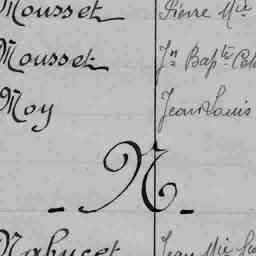 Mousset Pierre Mie
Mousset Jn Bapte
Moy Jean Louis
- N -
Nabucet Jean Mie